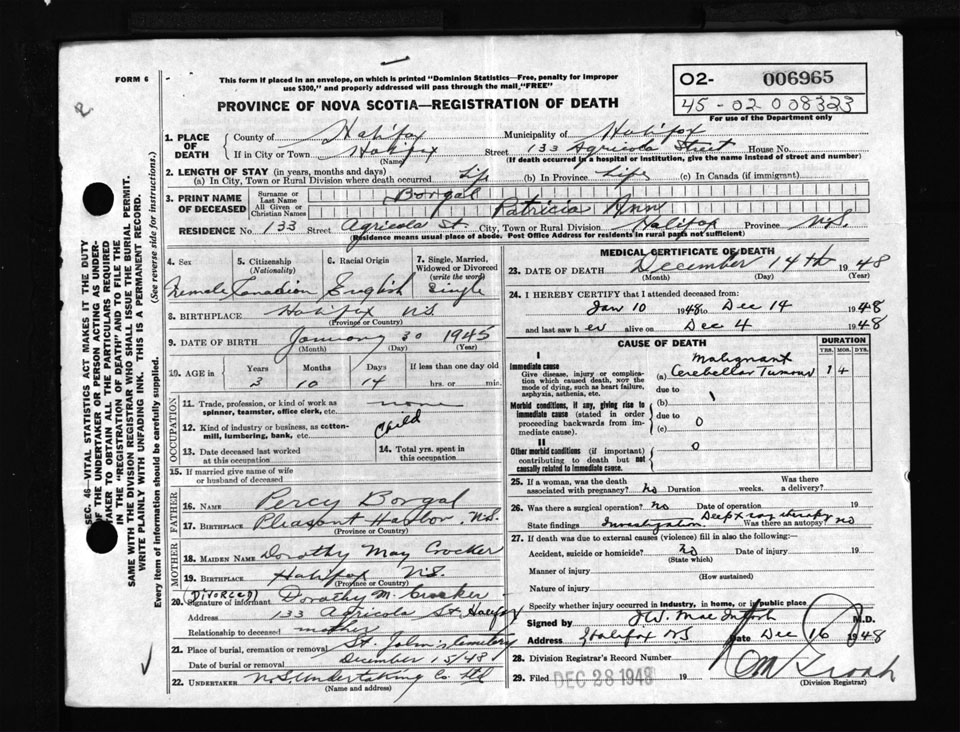 FORM 6
This form if placed in an envelope, on which is printed "Dominion Statistics—Free, penalty for improper
use $300," and properly addressed will pass through the mail, "FREE"
PROVINCE OF NOVA SCOTIA—REGISTRATION OF DEATH
O2- 006965
45-02 008323
For use of the Department only
1. PLACE OF DEATH
County of Halifax Municipality of Halifax
If in City or Town Halifax Street 133 Agricola Street House No.
(Name) (If death occurred in a hospital or institution, give the name instead of street and number)
2. LENGTH OF STAY (in years, months and days)
(a) In City, Town or Rural Division where death occurred Life (b) In Province Life (c) In Canada (if immigrant)
3. PRINT NAME OF DECEASED
Surname or Last Name Borgal
All Given or Christian Names Patricia Ann
RESIDENCE No. 133 Street Agricola St City, Town or Rural Division Halifax Province N.S.
(Residence means usual place of abode. Post Office Address for residents in rural parts not sufficient)
4. Sex Female
5. Citizenship (Nationality) Canadian
6. Racial Origin English
7. Single, Married, Widowed or Divorced (write the word) Single
8. BIRTHPLACE Halifax N.S.
(Province or Country)
9. DATE OF BIRTH January 30 1945
(Month) (Day) (Year)
10. AGE in Years Months Days If less than one day old
3 10 14 hrs. or min.
OCCUPATION
11. Trade, profession, or kind of work as spinner, teamster, office clerk, etc. none
12. Kind of industry or business, as cotton-mill, lumbering, bank, etc. Child
13. Date deceased last worked at this occupation
14. Total yrs. spent in this occupation
15. If married give name of wife or husband of deceased
FATHER
16. NAME Percy Borgal
17. BIRTHPLACE Pleasant Harbor, N.S.
(Province or Country)
MOTHER
18. MAIDEN NAME Dorothy May Crocker
19. BIRTHPLACE Halifax N.S.
(Province or Country)
(DIVORCED)
20. Signature of informant Dorothy M. Crocker
Address 133 Agricola St Halifax
Relationship to deceased mother
21. Place of burial, cremation or removal St. John's Cemetery
Date of burial or removal December 15/48
22. UNDERTAKER N.S. Undertaking Co. Ltd
(Name and address)
MEDICAL CERTIFICATE OF DEATH
23. DATE OF DEATH December 14th 1948
(Month) (Day)
24. I HEREBY CERTIFY that I attended deceased from:
Jan 10 1948 to Dec 14 1948
and last saw her alive on Dec 4 1948
CAUSE OF DEATH
DURATION
YRS. MOS. DYS.
I
Immediate cause
Give disease, injury or complication which caused death, nor the mode of dying, such as heart failure, asphyxia, asthenia, etc.
(a) Malignant Cerebellar Tumour 1 4
due to
Morbid conditions, if any, giving rise to immediate cause (stated in order proceeding backwards from immediate cause).
(b)
due to
(c) 0
II
Other morbid conditions (if important) contributing to death but not causally related to immediate cause.
0
25. If a woman, was the death associated with pregnancy? No Duration weeks. Was there a delivery?
26. Was there a surgical operation? No Date of operation 19
State findings Investigation. Deep x ray therapy Was there an autopsy? no
27. If death was due to external causes (violence) fill in also the following:
Accident, suicide or homicide? No Date of injury 19
(State which)
Manner of injury
(How sustained)
Nature of injury
Specify whether injury occurred in industry, in home, or in public place
Signed by J.W. MacIntosh M.D.
Address Halifax NS Date Dec 16 1948
28. Division Registrar's Record Number
29. Filed DEC 28 1948 19
(Division Registrar)
SEC. 46—VITAL STATISTICS ACT MAKES IT THE DUTY
OF THE UNDERTAKER OR PERSON ACTING AS UNDER-
TAKER TO OBTAIN ALL THE PARTICULARS REQUIRED
IN THE "REGISTRATION OF DEATH" AND TO FILE THE
SAME WITH THE DIVISION REGISTRAR WHO SHALL ISSUE THE BURIAL PERMIT.
WRITE PLAINLY WITH UNFADING INK. THIS IS A PERMANENT RECORD.
Every item of information should be carefully supplied. (See reverse side for instructions.)